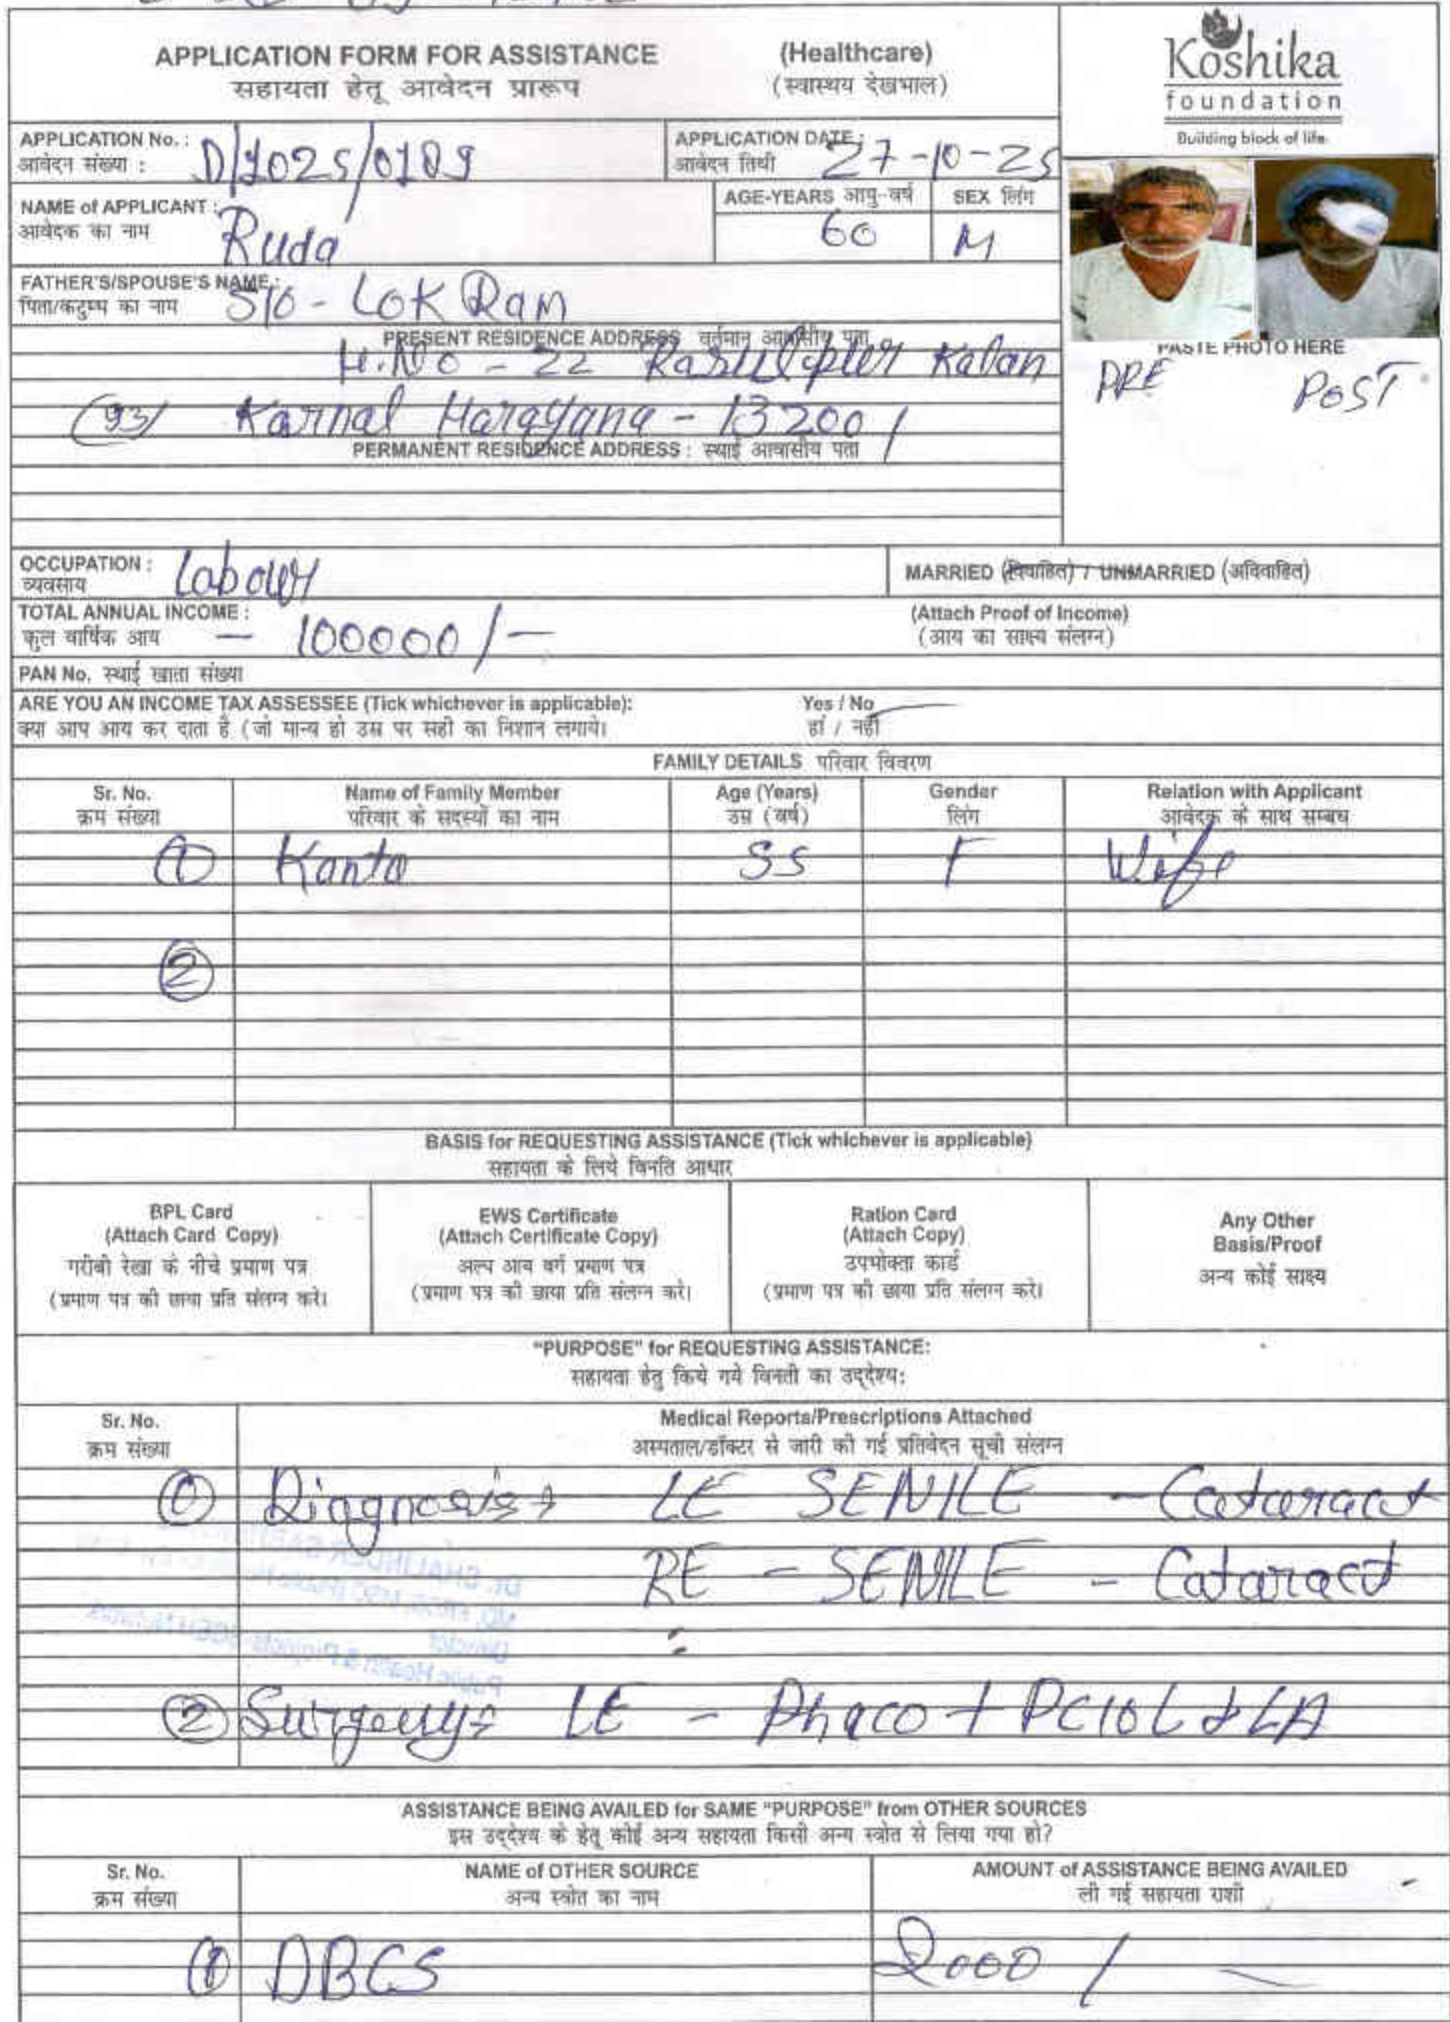 APPLICATION FORM FOR ASSISTANCE (Healthcare)
सहायता हेतू आवेदन प्रारूप (स्वास्थय देखभाल)
Koshika
foundation
Building block of life
APPLICATION No. : APPLICATION DATE :
आवेदन संख्या : D/2025/0189 आवेदन तिथी 27-10-25
NAME of APPLICANT : AGE-YEARS आयु-वर्ष SEX लिंग
आवेदक का नाम Ruda 60 M
FATHER'S/SPOUSE'S NAME :
पिता/कटुम्ब का नाम S/O - LOK RAM
PRESENT RESIDENCE ADDRESS वर्तमान आवासीय पता
H.NO - 22 Rasulpur Kalan
(93) Karnal Harayana - 132001
PERMANENT RESIDENCE ADDRESS : स्थाई आवासीय पता
PASTE PHOTO HERE
PRE POST
OCCUPATION : Labour
व्यवसाय
MARRIED (विवाहित) / UNMARRIED (अविवाहित)
TOTAL ANNUAL INCOME : (Attach Proof of Income)
कुल वार्षिक आय - 100000/- (आय का साक्ष्य संलग्न)
PAN No. स्थाई खाता संख्या
ARE YOU AN INCOME TAX ASSESSEE (Tick whichever is applicable): Yes / No
क्या आप आय कर दाता है (जो मान्य हो उस पर सही का निशान लगाये। हां / नहीं
FAMILY DETAILS परिवार विवरण
Sr. No. Name of Family Member Age (Years) Gender Relation with Applicant
क्रम संख्या परिवार के सदस्यों का नाम उम्र (वर्ष) लिंग आवेदक के साथ सम्बध
1 Kanta 55 F Wife
2
BASIS for REQUESTING ASSISTANCE (Tick whichever is applicable)
सहायता के लिये विनति आधार
BPL Card
(Attach Card Copy)
गरीबी रेखा के नीचे प्रमाण पत्र
(प्रमाण पत्र की छाया प्रति संलग्न करे।
EWS Certificate
(Attach Certificate Copy)
अल्प आय वर्ग प्रमाण पत्र
(प्रमाण पत्र की छाया प्रति संलग्न करे।
Ration Card
(Attach Copy)
उपभोक्ता कार्ड
(प्रमाण पत्र की छाया प्रति संलग्न करे।
Any Other
Basis/Proof
अन्य कोई साक्ष्य
"PURPOSE" for REQUESTING ASSISTANCE:
सहायता हेतु किये गये विनती का उद्देश्य:
Sr. No. Medical Reports/Prescriptions Attached
क्रम संख्या अस्पताल/डॉक्टर से जारी की गई प्रतिवेदन सूची संलग्न
1 Diagnosis LE SENILE - Cataract
RE - SENILE - Cataract
2 Surgery LE - Phaco + PCIOL LA
ASSISTANCE BEING AVAILED for SAME "PURPOSE" from OTHER SOURCES
इस उद्देश्य के हेतू कोई अन्य सहायता किसी अन्य स्त्रोत से लिया गया हो?
Sr. No. NAME of OTHER SOURCE AMOUNT of ASSISTANCE BEING AVAILED
क्रम संख्या अन्य स्त्रोत का नाम ली गई सहायता राशी
1 DBCS 2000/-